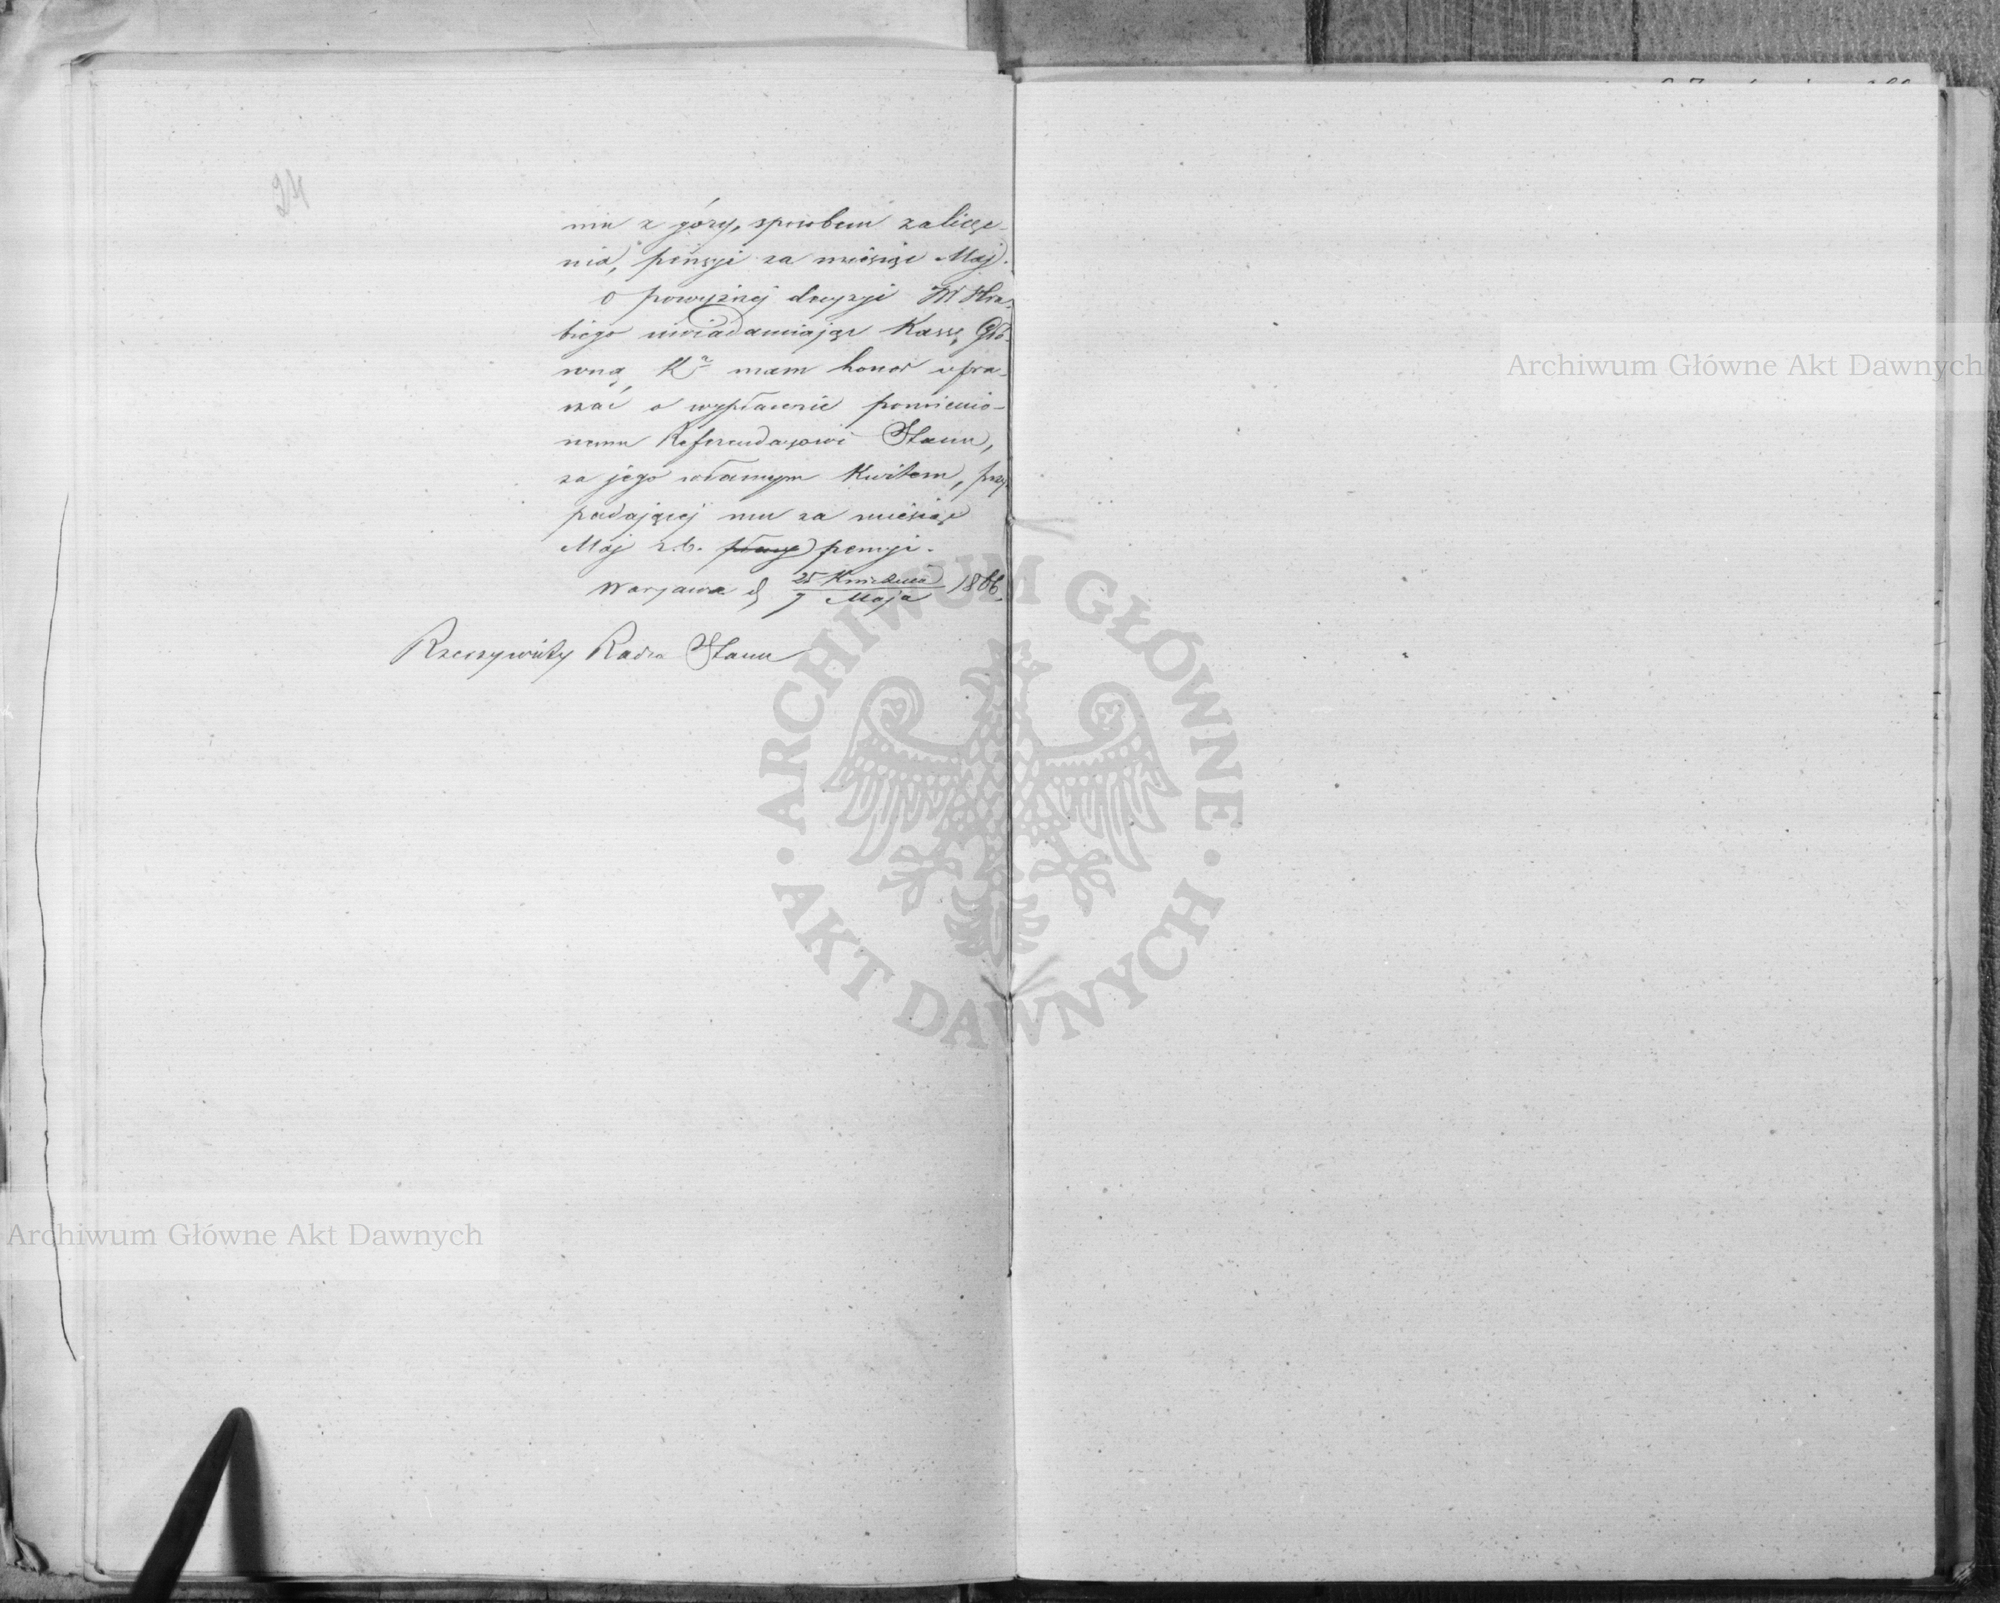 24
niu z góry, sposobem zalicze-
nia, pensyi za miesiąc Maj.
O powyższej decyzyi JW Hra-
biego uwiadamiając Kassę Głó-
wną, mam honor upra-
szać o wypłacenie pomienio-
nemu Referendarzowi Stanu,
za jego własnym Kwitem, przy-
padającej mu za miesiąc
Maj r.b. płacy pensyi.
Warszawa d. 25 Kwietnia 1866.
7 Maja
Rzeczywisty Radca Stanu
ARCHIWUM GŁÓWNE
AKT DAWNYCH
Archiwum Główne Akt Dawnych
Archiwum Główne Akt Dawnych